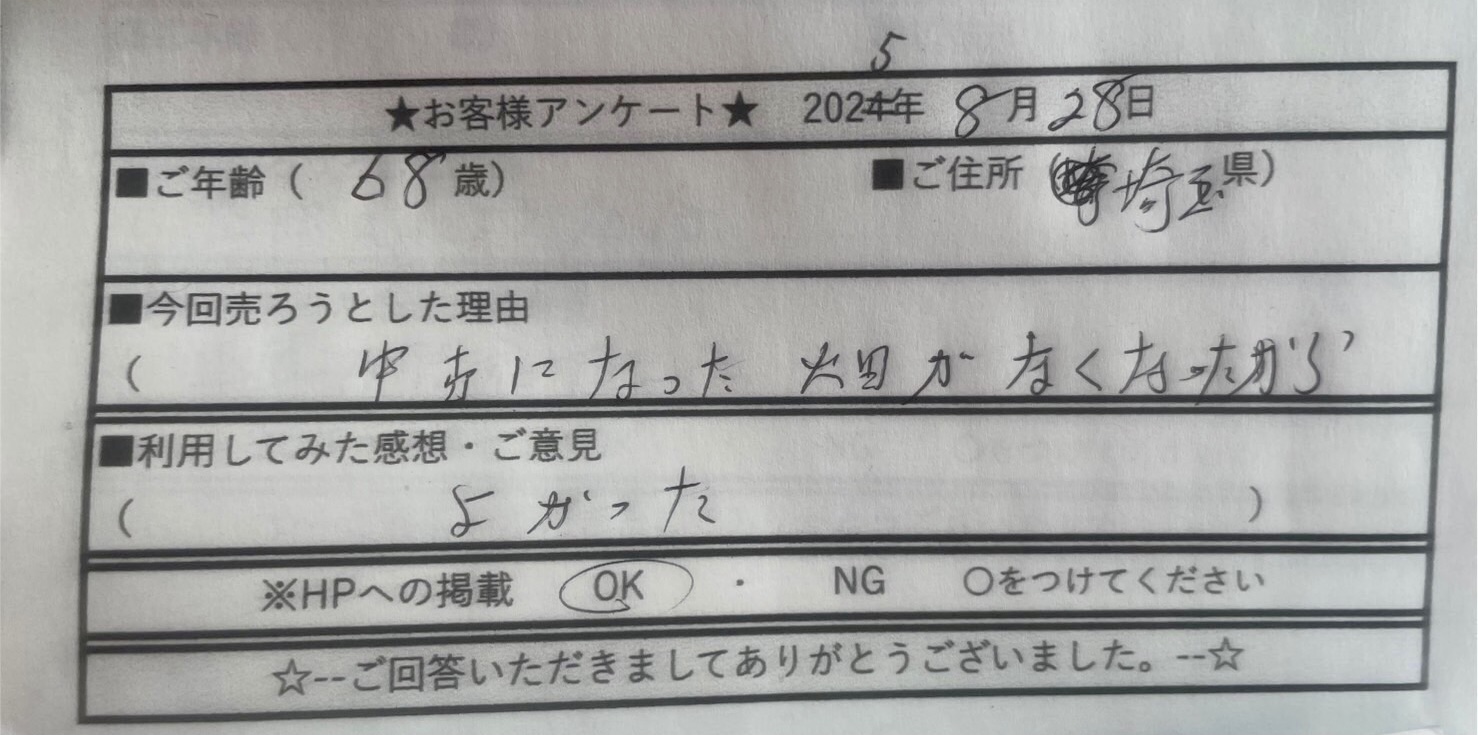 ★お客様アンケート★ 2025年 8月28日
■ご年齢( 68歳) ■ご住所(埼玉県)
■今回売ろうとした理由
( になった 畑がなくなったから
■利用してみた感想・ご意見
( よかった )
※HPへの掲載 OK ・ NG ○をつけてください
☆--ご回答いただきましてありがとうございました。--☆